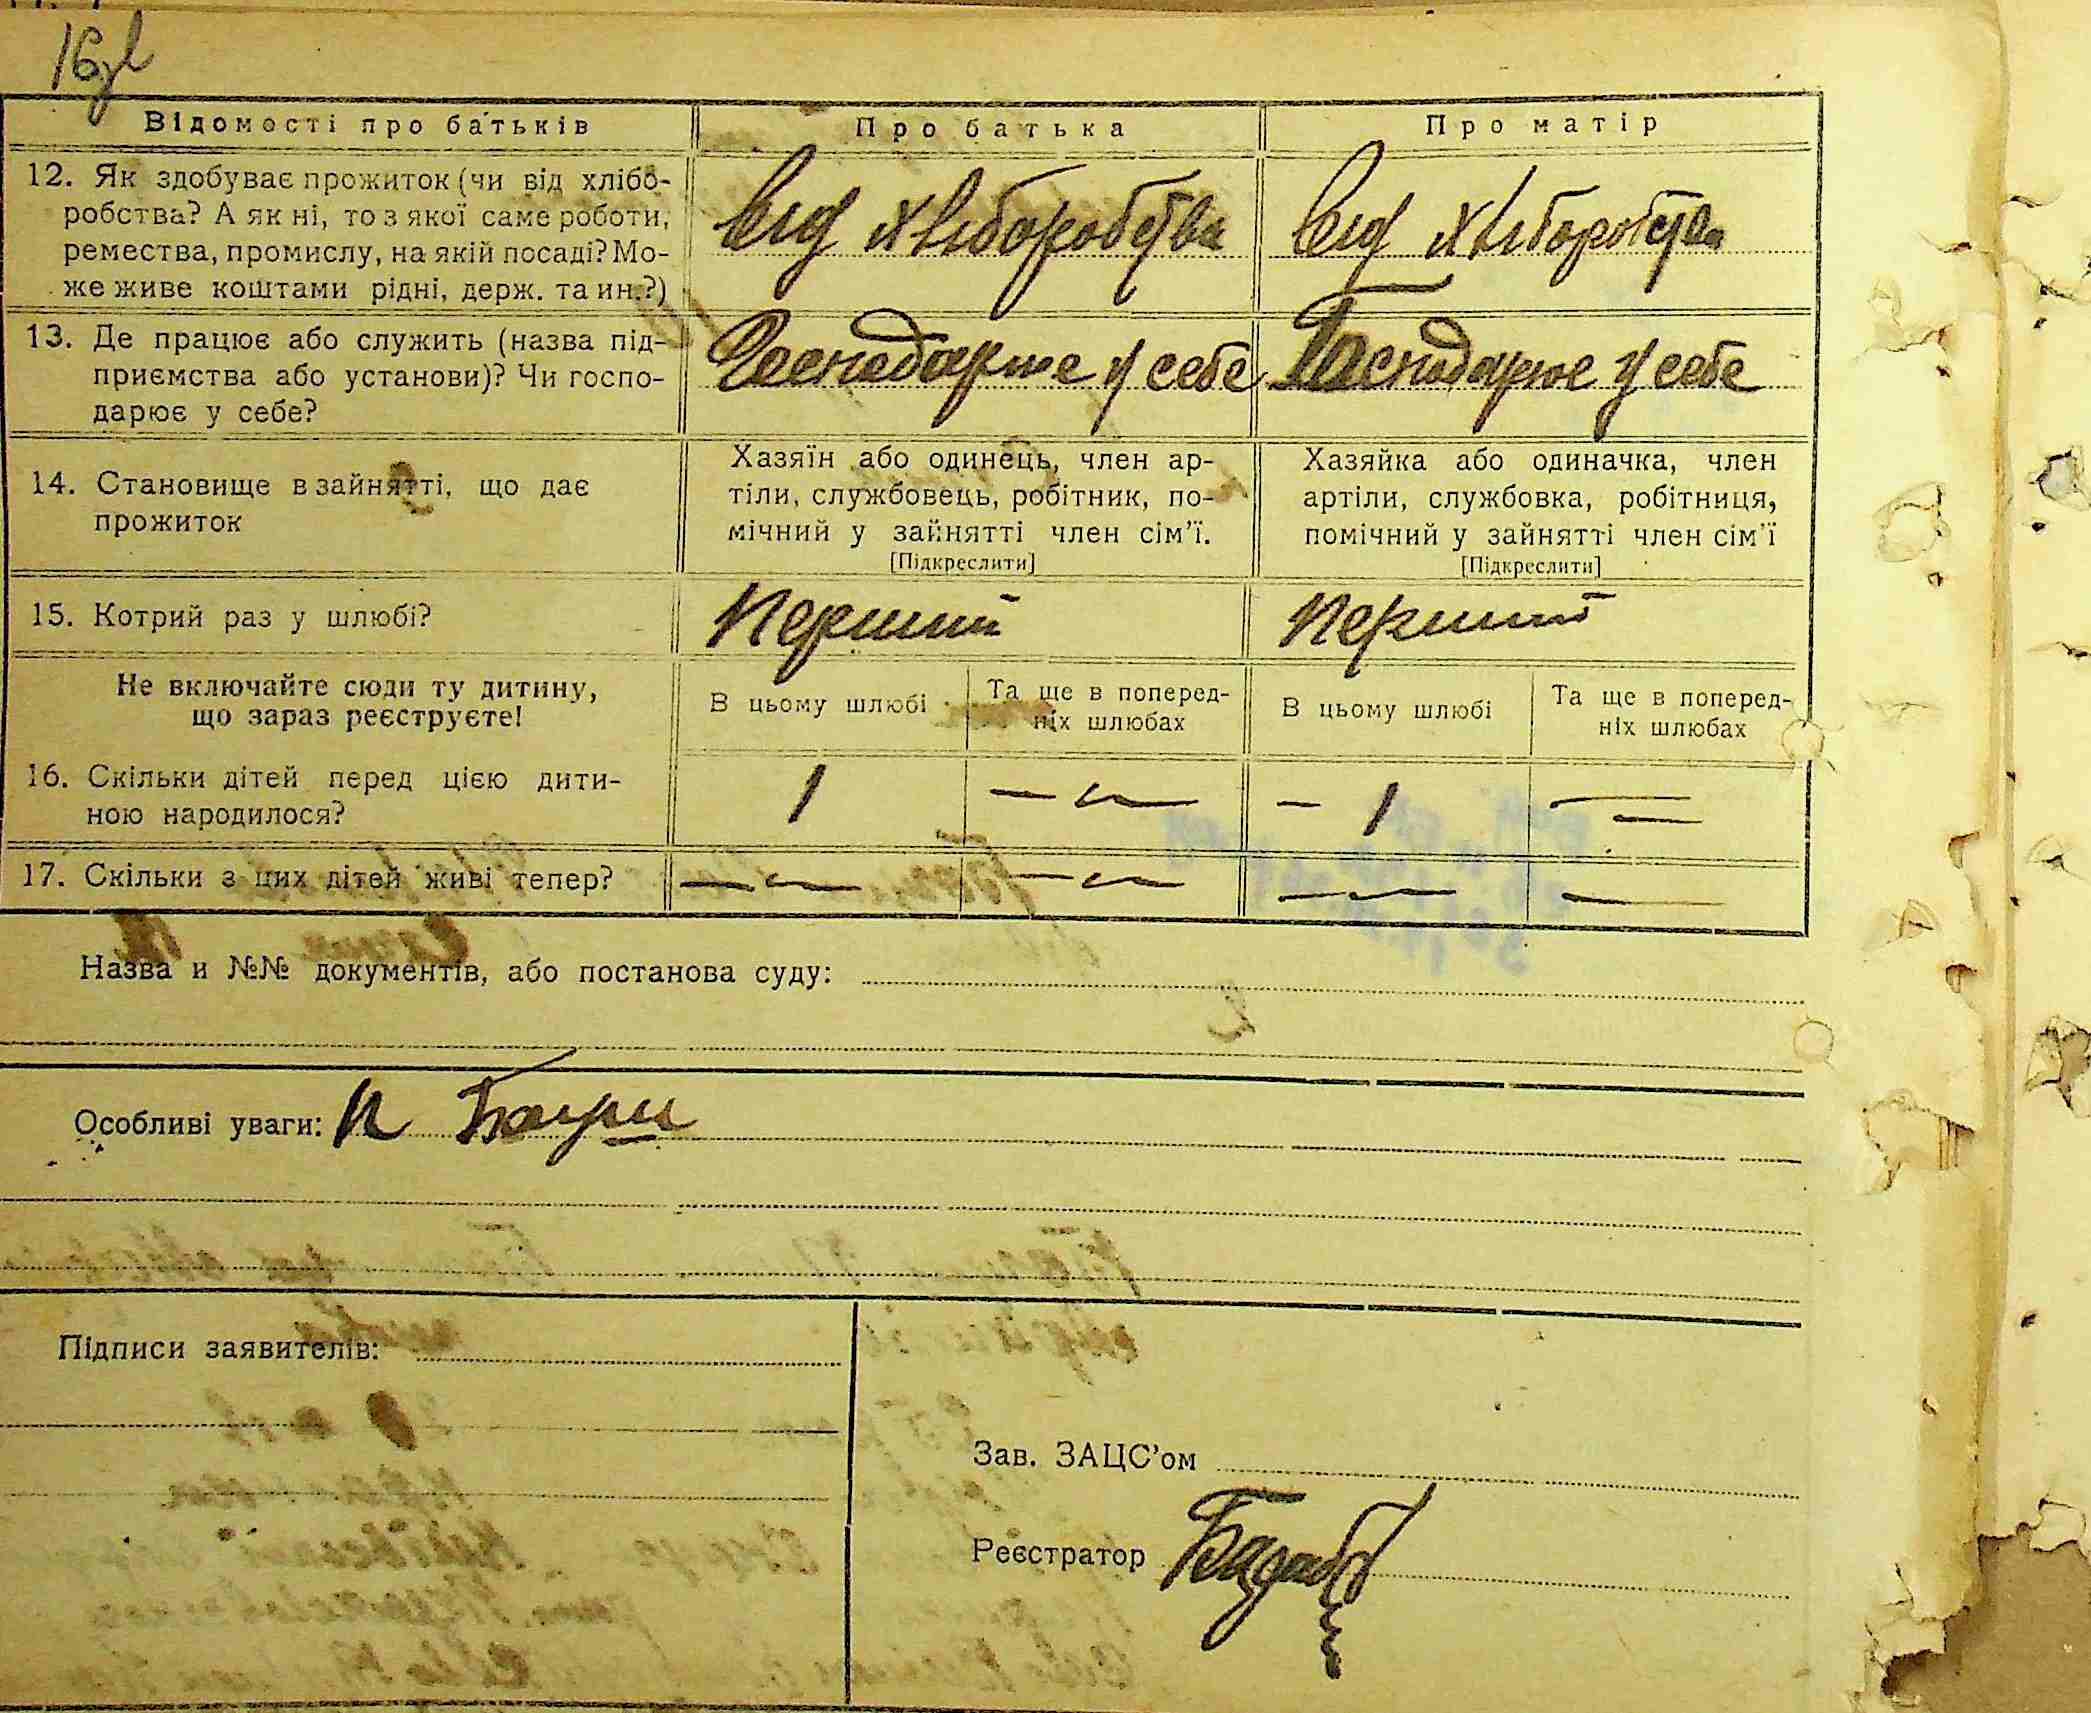 Відомості про батьків
Про батька
Про матір
12. Як здобуває прожиток (чи від хлібо-
робства? А як ні, то з якої саме роботи,
ремества, промислу, на якій посаді? Мо-
же живе коштами рідні, держ. та ин.?)
Від хліборобства
Від хліборобства
13. Де працює або служить (назва під-
приємства або установи)? Чи госпо-
дарює у себе?
Господарює у себе
Господарює у себе
14. Становище в зайнятті, що дає
прожиток
Хазяїн або одинець, член ар-
тіли, службовець, робітник, по-
мічний у зайнятті член сім'ї.
[Підкреслити]
Хазяйка або одиначка, член
артіли, службовка, робітниця,
помічний у зайнятті член сім'ї
[Підкреслити]
15. Котрий раз у шлюбі?
Перший
Перший
Не включайте сюди ту дитину,
що зараз реєструєте!
В цьому шлюбі
Та ще в поперед-
ніх шлюбах
В цьому шлюбі
Та ще в поперед-
ніх шлюбах
16. Скільки дітей перед цією дити-
ною народилося?
1
— „ —
– 1
—
17. Скільки з цих дітей живі тепер?
— „ —
— „ —
— „ —
—
Назва и №№ документів, або постанова суду:
Особливі уваги:
Підписи заявителів:
Зав. ЗАЦС'ом
Реєстратор